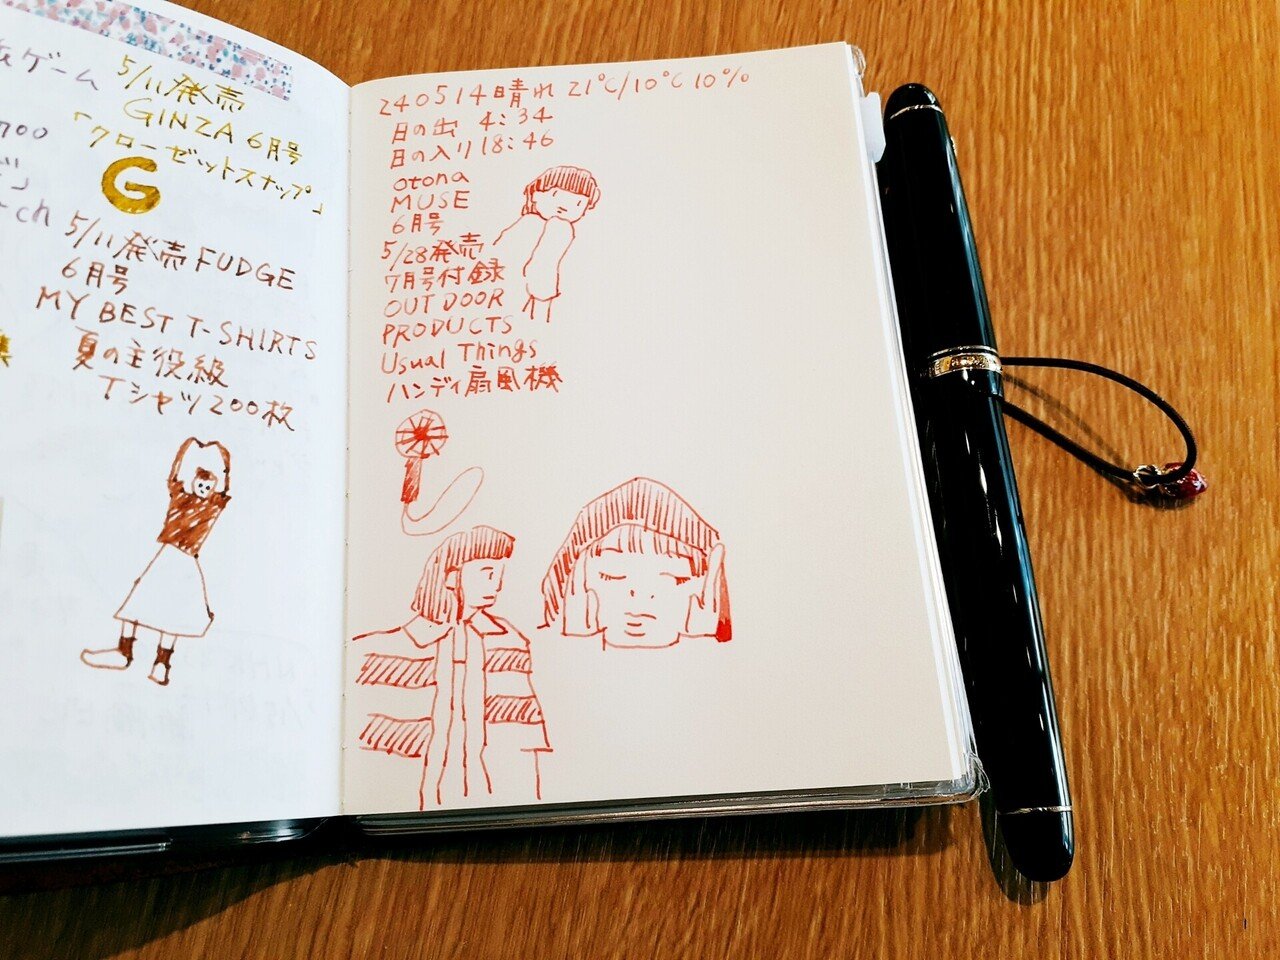 ゲーム
5/11発売
GINZA 6月号
「クローゼットスナップ」
G
700
ch
5/11発売 FUDGE
6月号
MY BEST T-SHIRTS
夏の主役級
Tシャツ200枚
240514晴れ 21℃/10℃ 10%
日の出 4:34
日の入り18:46
otona
MUSE
6月号
5/28発売
7月号付録
OUTDOOR
PRODUCTS
Usual Things
ハンディ扇風機